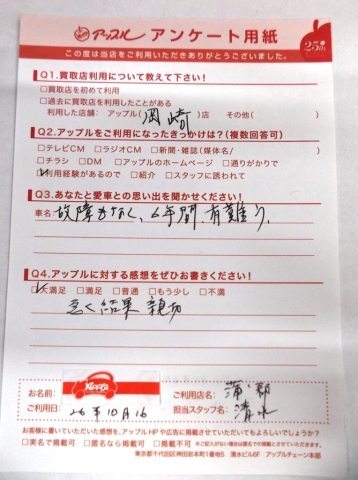 アップル アンケート用紙
25th
この度は当店をご利用いただきありがとうございました。
Q1.買取店利用について教えて下さい！
□買取店を初めて利用
□過去に買取店を利用したことがある
利用した店舗： アップル( 岡崎 )店 その他( )
Q2.アップルをご利用になったきっかけは？(複数回答可)
□テレビCM □ラジオCM □新聞・雑誌(媒体名/ )
□チラシ □DM □アップルのホームページ □通りがかりで
□利用経験があるので □紹介 □スタッフに誘われて
Q3.あなたと愛車との思い出を聞かせください！
車名 故障もなく、6年間、有難う、
Q4.アップルに対する感想をぜひお書きください！
□大満足 □満足 □普通 □もう少し □不満
結果 親切
お名前：
Apple
ご利用店名： 蒲郡
ご利用日： 26年10月16
担当スタッフ名： 清水
お客様に書いていただいた感想を、アップルHPや広告に掲載させていただいてもよろしいでしょうか？
□実名で掲載可 □匿名なら掲載可 □掲載不可 ※ご記入がない場合は匿名での掲載とさせていただきます。
東京都千代田区神田岩本町1番地5 清水ビル6F アップルチェーン本部